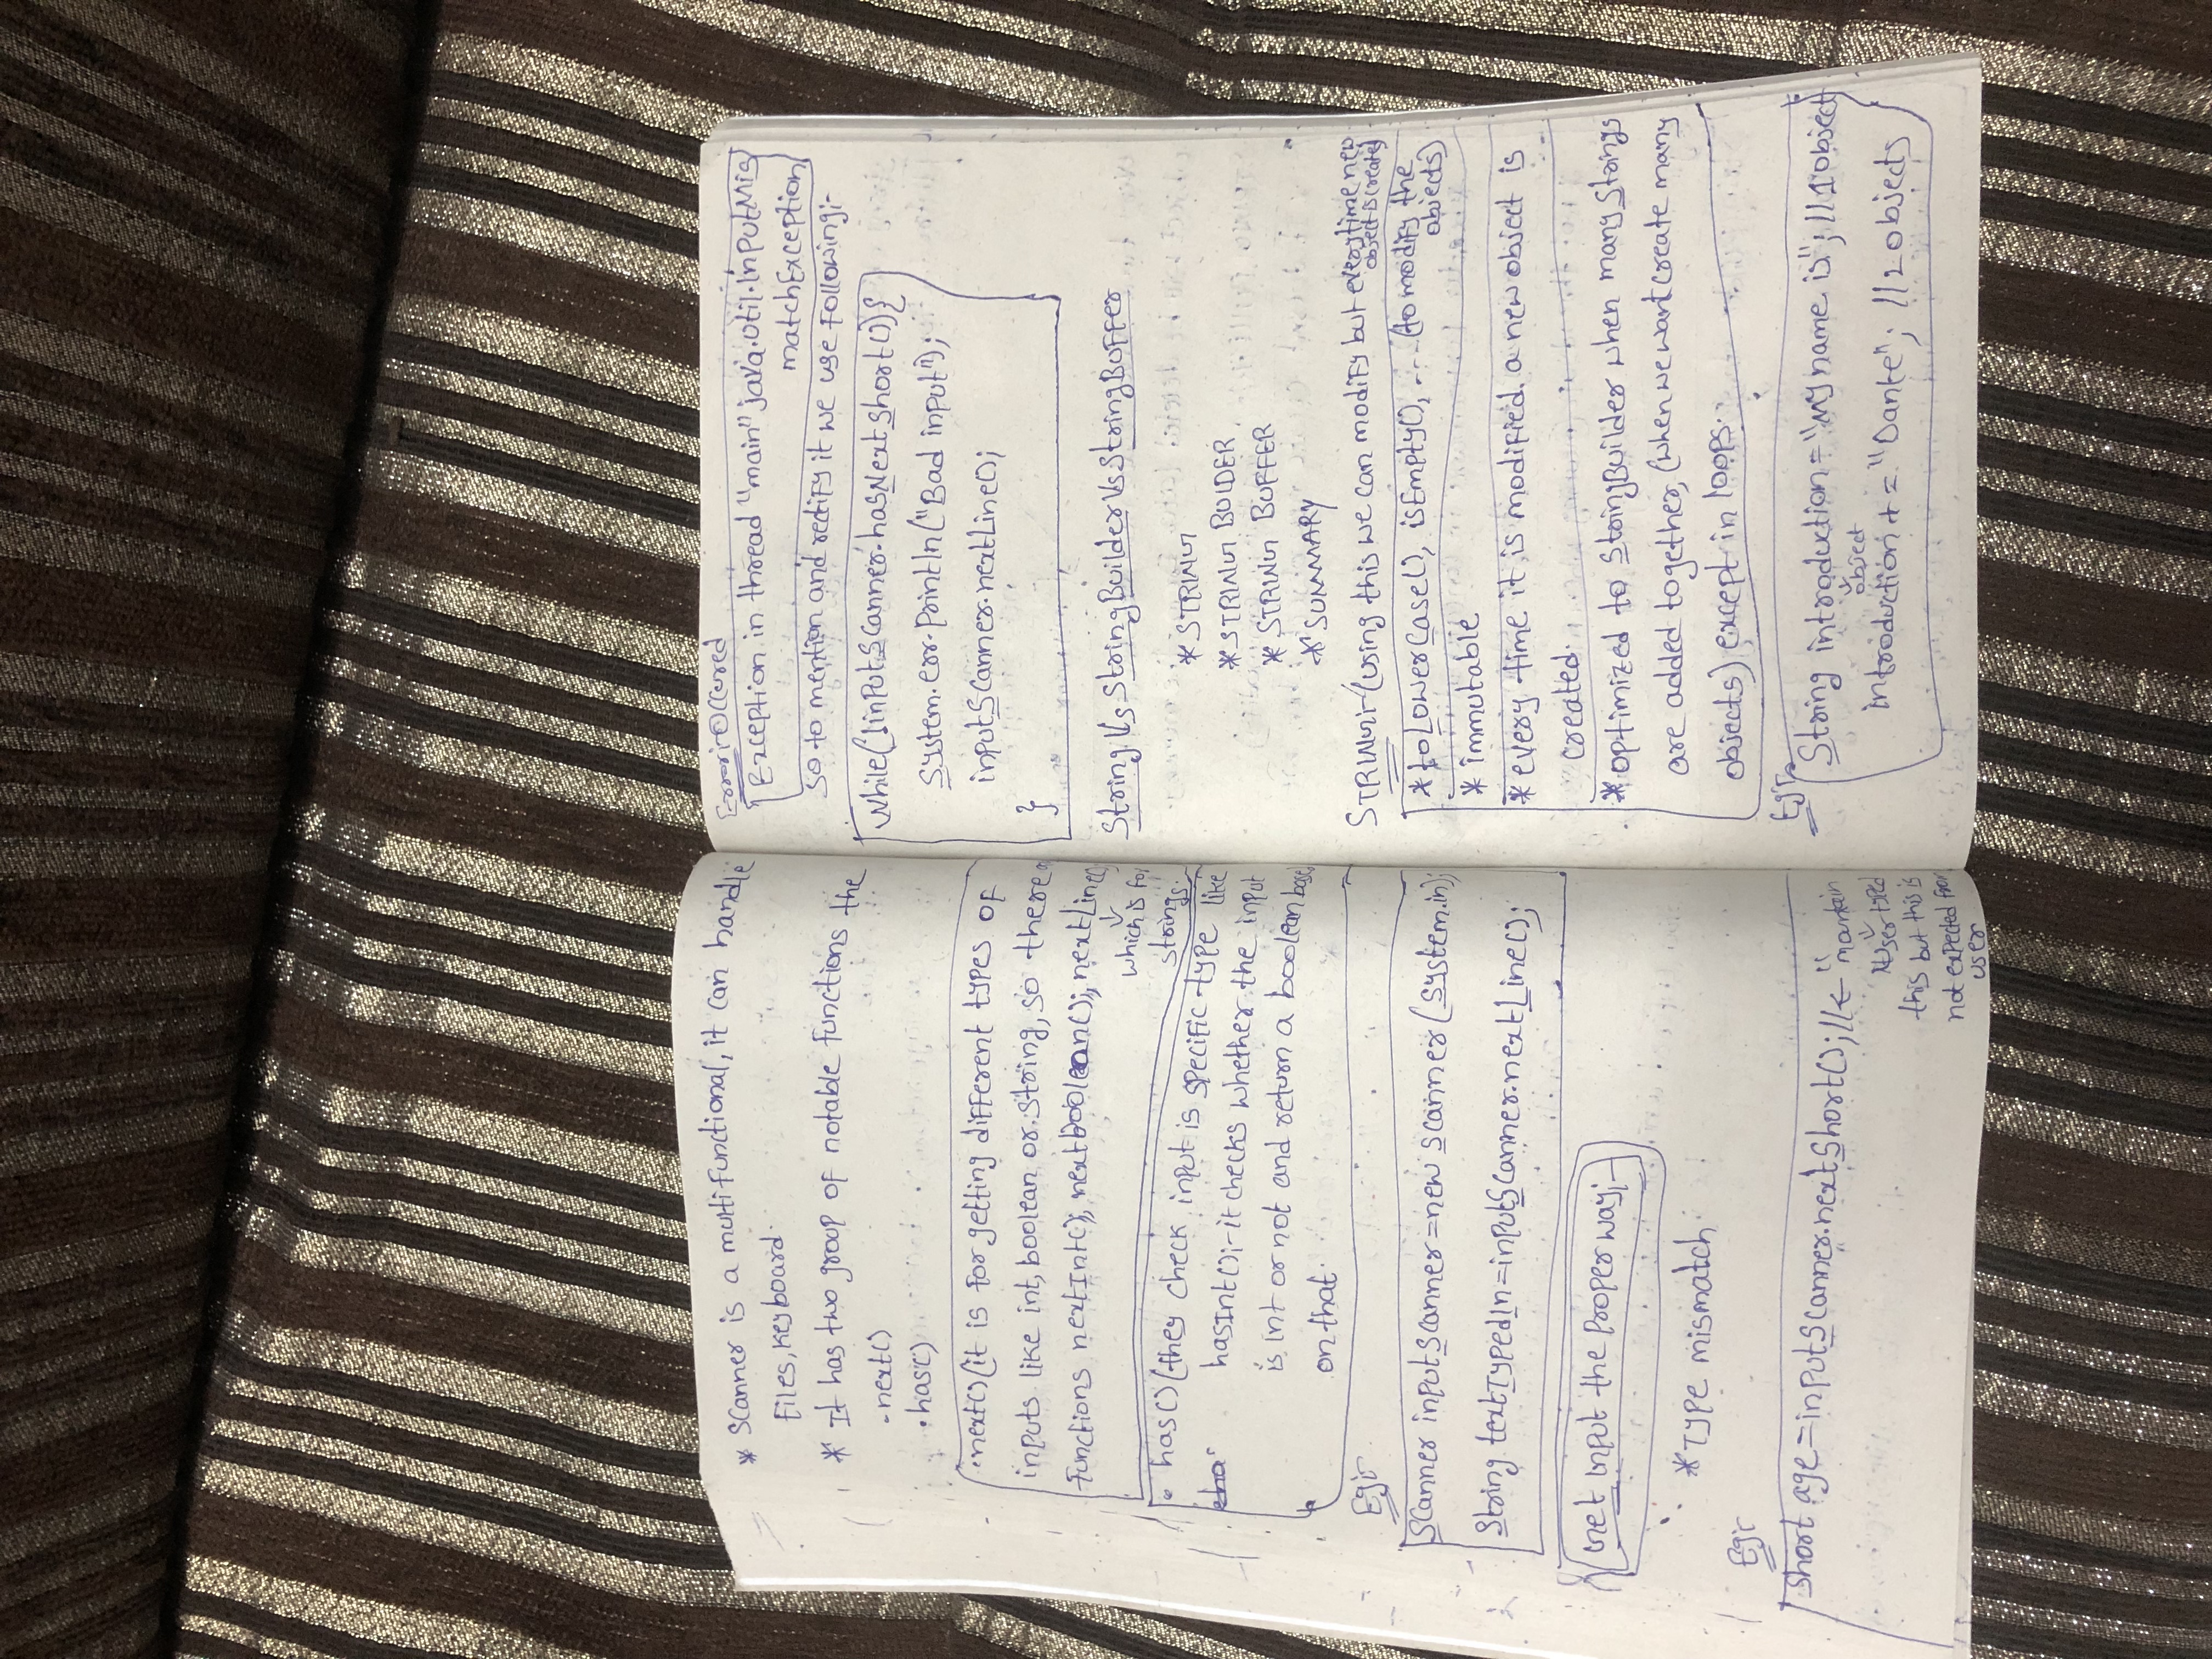 * Scanner is a multifunctional, it can handle
Files, Keyboard.
* It has two group of notable functions the
.next()
.has()
.next() (it is for getting different types of
inputs like int, boolean or string, so there
functions nextInt();, nextboolean();, nextLine()
which is for
strings.
• has() (they check input is specific type like
hasInt();- it checks whether the input
is int or not and return a boolean base
on that.
Eg:-
Scanner inputScanner=new Scanner(System.in);
String textTypedIn=inputScanner.nextLine();
Get input the Proper way;-
*Type mismatch.
Eg:-
Short age=inputScanner.nextShort();//← "mantain
User typed
this but this is
not expected from
user
Error:-Occured
Exception in thread "main" java.util.InputMis
matchException
So to mention and rectify it we use following;-
While(!inputScanner.hasNextShort()){
System.err.println("Bad input");
inputScanner.nextLine();
}
String Vs StringBuilder Vs StringBuffer
*STRING
*STRING BUIDER
*STRING BUFFER
*SUMMARY
STRING:-(using this we can modify but everytime new
object is created
*toLowerCase(), isEmpty(), .... (to modify the
objects)
* immutable
*every time it is modified. a new object is
created.
*optimized to StringBuilder when many Strings
are added together, (when we want create many
objects) except in loops.
Eg:-
String introduction="My name is"; //1 object
object
introduction += "Dante"; //2 objects